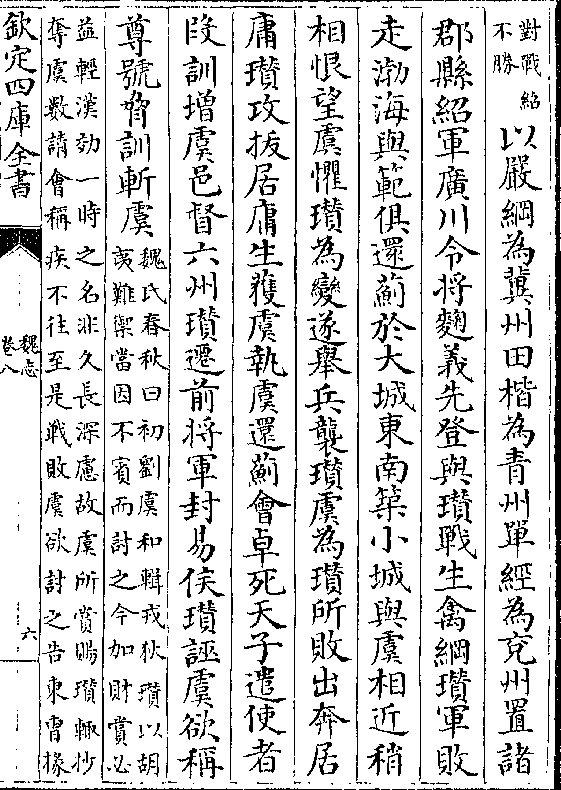 對戰紹
不勝
以嚴綱為冀州田楷為青州單經為兖州置諸
郡縣紹軍廣川令將麴義先登與瓉戰生禽綱瓉軍敗
走渤海與範俱還薊於大城東南築小城與虞相近稍
相恨望虞懼瓉為變遂舉兵襲瓉虞為瓉所敗出奔居
庸瓉攻拔居庸生獲虞執虞還薊會卓死天子遣使者
段訓增虞邑督六州瓉遷前將軍封易侯瓉誣虞欲稱
尊號脅訓斬虞
魏氏春秋曰初劉虞和輯戎狄瓉以胡
夷難禦當因不賓而討之今加財賞必
益輕漢効一時之名非久長深慮故虞所賞賜瓉輒抄
奪虞數請會稱疾不往至是戰敗虞欲討之告東曹掾
欽定四庫全書
魏志
卷八
六